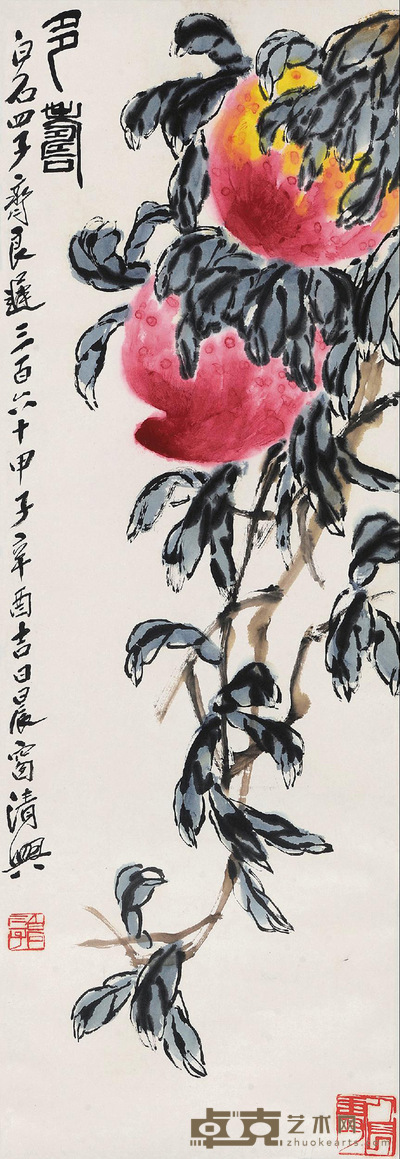 多壽
白石四子齊良遲三百六十甲子辛酉吉日晨窗清興
卓克艺术网
zhuokearts.com